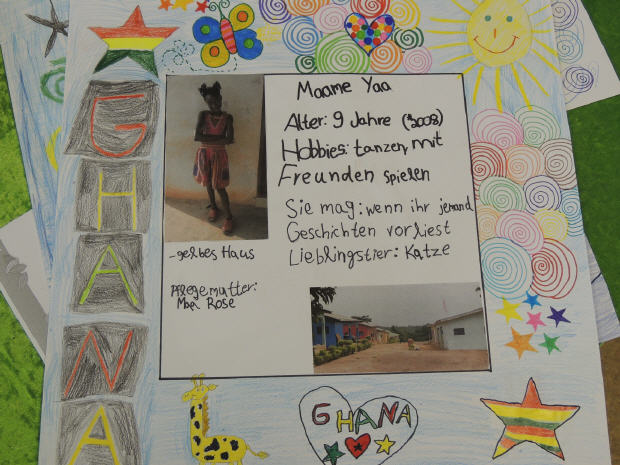 GHANA
Maame Yaa
Alter: 9 Jahre (*2008)
Hobbies: tanzen, mit
Freunden spielen
Sie mag: wenn ihr jemand
Geschichten vorliest
Lieblingstier: Katze
-gelbes Haus
Pflegemutter:
Rose
GHANA